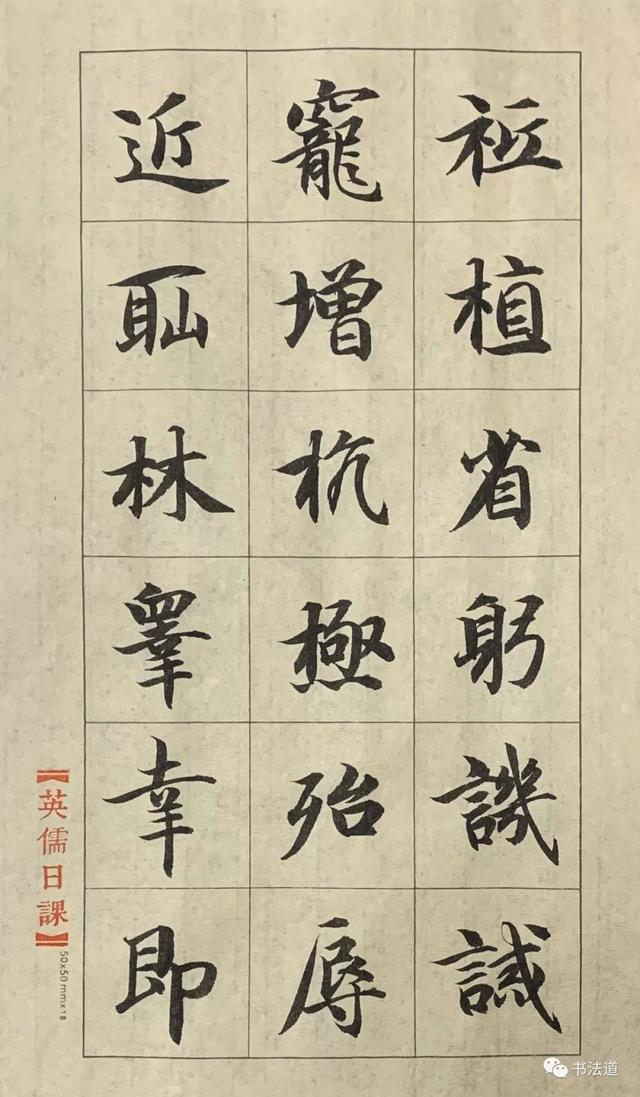 祗植省躬譏誡
寵增抗極殆辱
近耻林皋幸即
【英儒日課】
50x50mmx18
书法道